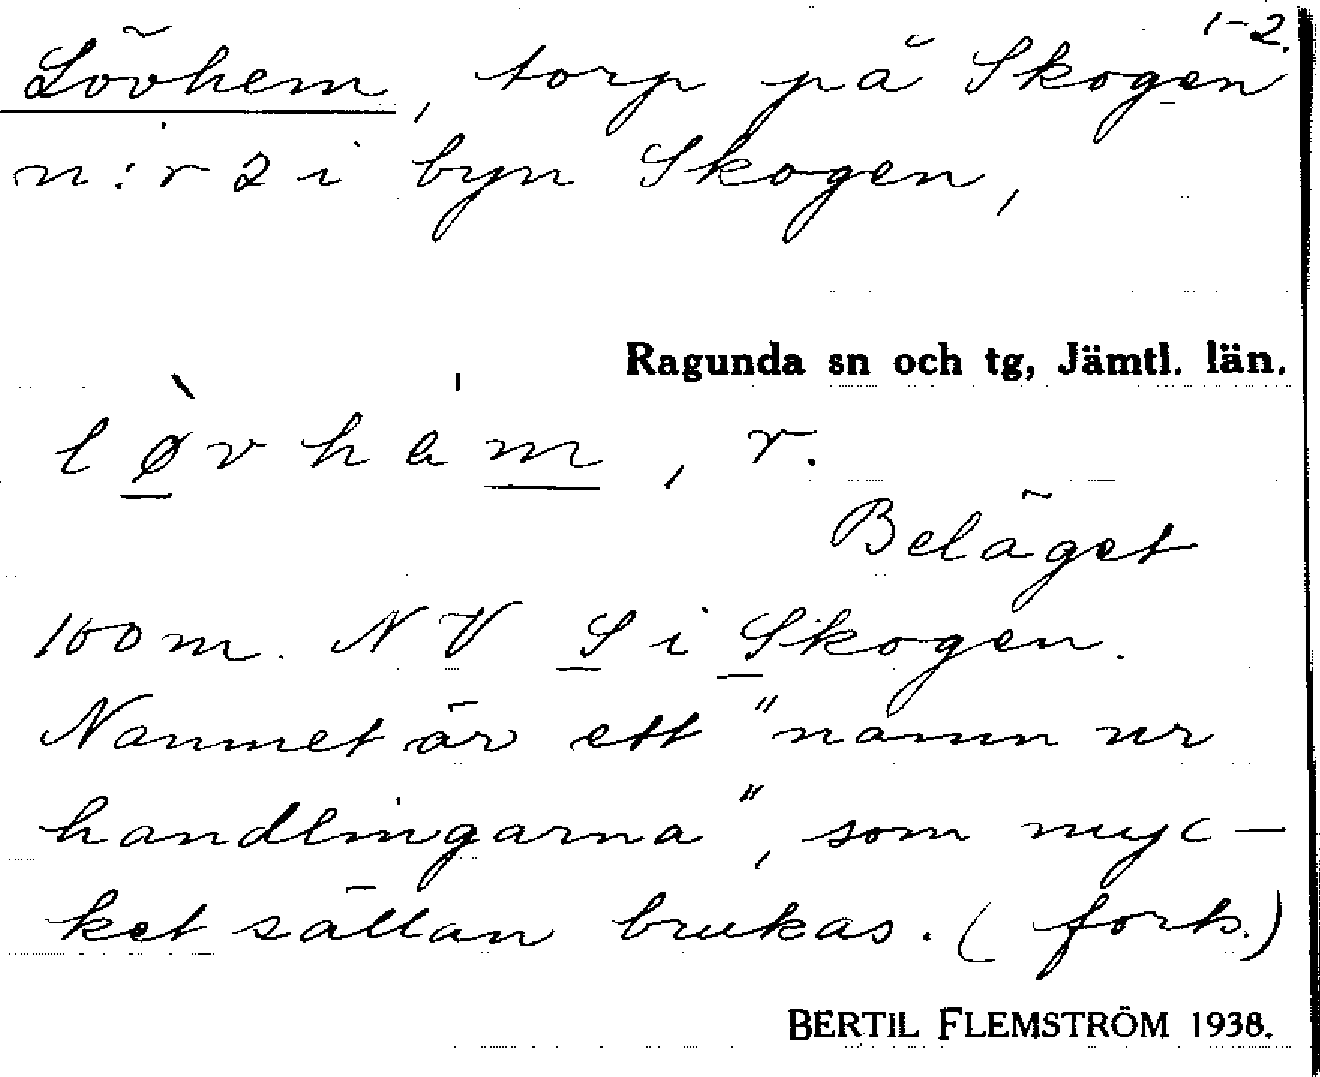 1-2.
Lövhem, torp på Skogen
n:r 2 i byn Skogen,
Ragunda sn och tg, Jämtl. län.
lø̀vhem, r.
Beläget
100 m. NV S i Skogen.
Namnet är ett "namn ur
handlingarna", som myc-
ket sällan brukas. (forts.)
BERTIL FLEMSTRÖM 1938.